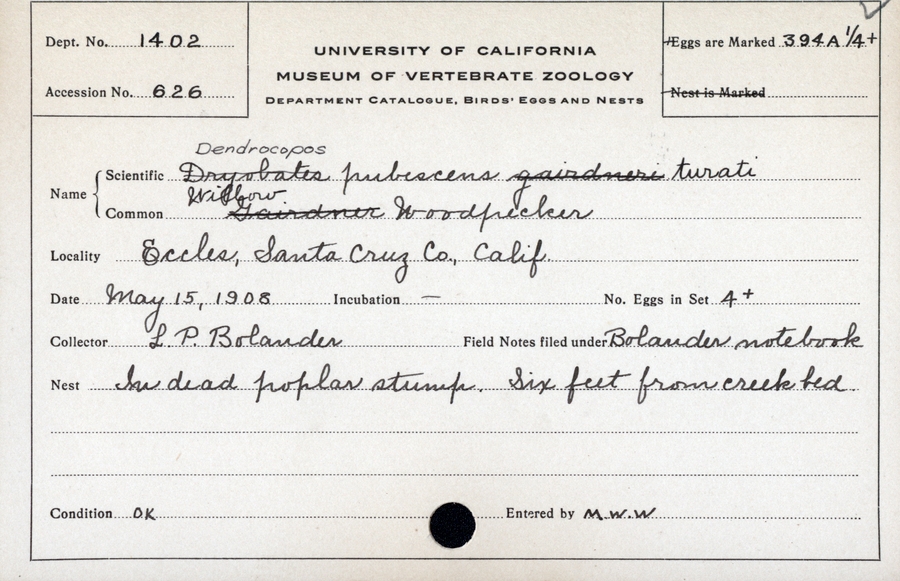 Dept. No. 1402
Accession No. 626
UNIVERSITY OF CALIFORNIA
MUSEUM OF VERTEBRATE ZOOLOGY
DEPARTMENT CATALOGUE, BIRDS' EGGS AND NESTS
Eggs are Marked 394A 1/4+
Nest is Marked
Dendrocopos
Name
Scientific Dryobates pubescens gairdneri turati
Willow
Common Gairdner Woodpecker
Locality Eccles, Santa Cruz Co., Calif.
Date May 15, 1908 Incubation — No. Eggs in Set 4+
Collector L. P. Bolander Field Notes filed under Bolander notebook
Nest In dead poplar stump. Six feet from creek bed
Condition OK Entered by M.W.W